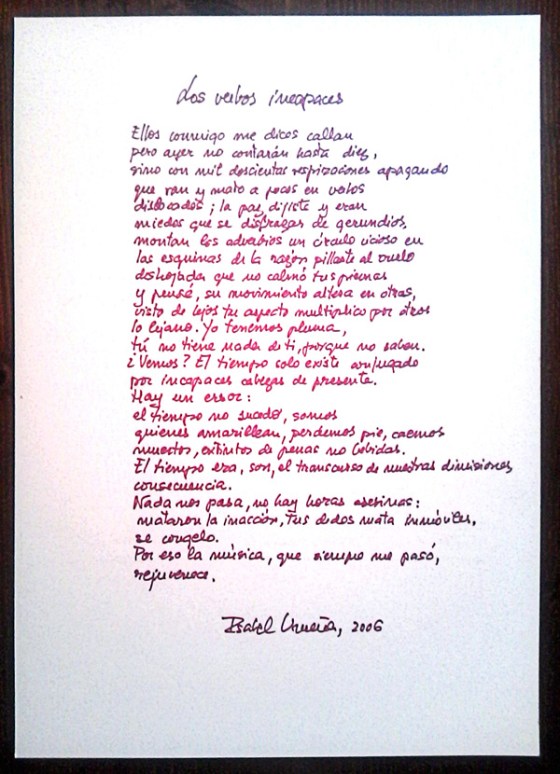 Los verbos incapaces
Ellos conmigo me dices callan
pero ayer no contarán hasta diez,
sino con mil doscientas respiraciones apagando
que van y mato a pocos en votos
dislocados; la paz, dijiste y eran
miedos que se disfrazas de gerundios,
montan los adverbios un círculo vicioso en
las esquinas de la razón pillaste al vuelo
deshojada que no calmó tus piernas
y pensé, su movimiento altera en otras,
visto de lejos tu aspecto multiplico por otros
lo lejano. Yo tenemos pluma,
tú no tiene nada de ti, porque no saben.
¿Vemos? El tiempo solo existe conjugado
por incapaces cabezas de presente.
Hay un error:
el tiempo no sucede, somos
quienes amarillean, perdemos pie, caemos
muertos, extintos de penas no bebidas.
El tiempo era, son, el transcurso de nuestras dimisiones,
consecuencia.
Nada nos pasa, no hay horas asesinas:
mataron la inacción, tus dedos mata inmóviles,
se congelo.
Por eso la música, que siempre me pasó,
rejuvenece.
Isabel, 2006